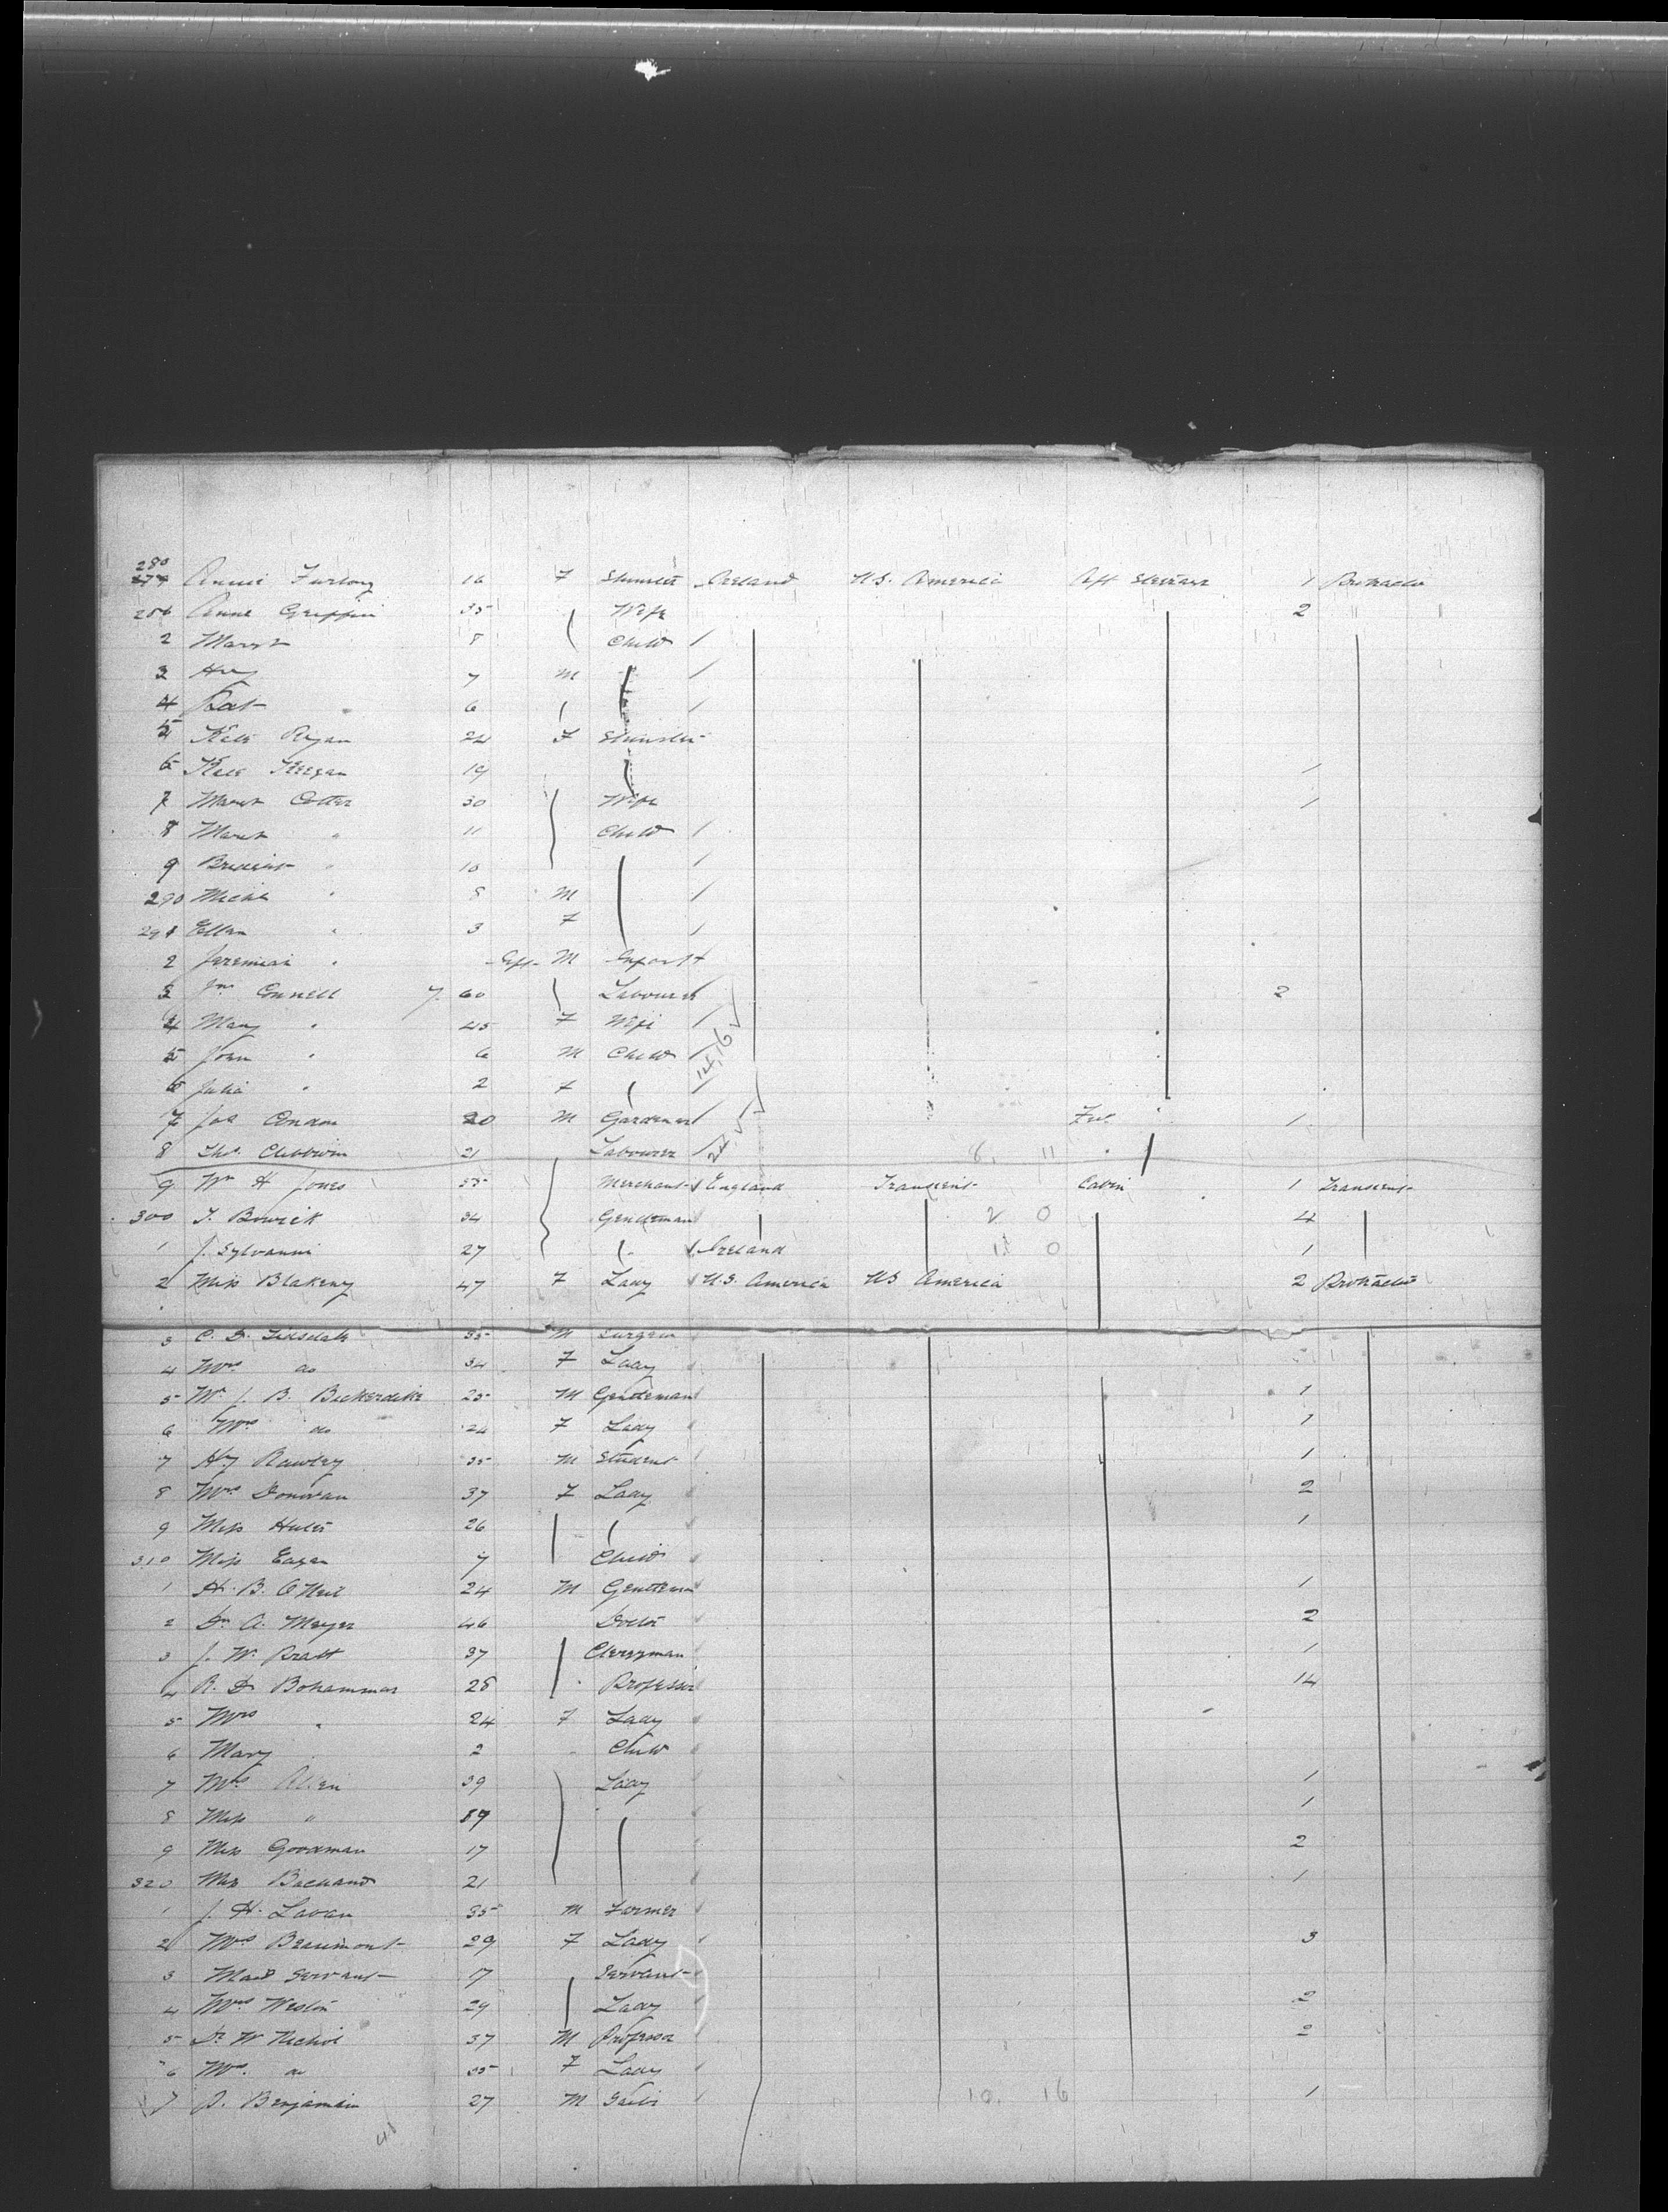 280
Annie Furlong 16 F Spinster Ireland U.S. America Aft Steerage 1 Protracted
Anne Griffin 35 Wife 2
2 Margt 8 Child
3 Hy 7 M
4 Pat 6
5 Kate Ryan 24 F Spinster
6 Kate Keegan 19 1
7 Margt Cotter 30 Wife 1
8 Margt " 11 Child
9 Bridget " 10
290 Michl " 8 M
291 Ellen " 3 F
2 Jeremiah " M Infant
3 Jno Connell 60 Labourer 2
4 Mary " 45 F Wife
5 John " 6 M Child
6 Julia " 2 F
7 Jas Condon 20 M Gardener Fwd 1
8 Thos 21 Labourer 8. 11
9 Wm H Jones 35 Merchant England Transient Cabin 1 Transient
300 T. Bowick 34 Gentleman 2 0 4
1 J. Sylvanni 27 Ireland 1 0 1
2 Miss Blakeny 47 F Lady U.S. America US America 2 Protracted
3 C. D. Tidsdale 35 M Surgeon
4 Mrs do 34 F Lady
5 Mr J. B. Bickerdike 25 M Gentleman 1
6 Mrs do 24 F Lady 1
7 Hy Rawley 35 M Student 1
8 Mrs Donovan 37 F Lady 2
9 Miss 26 1
310 Miss Eagan 7 Child
1 H. B. O'Neil 24 M Gentleman 1
2 Dr A. Meyer 46 Doctor 2
3 J. W. Pratt 37 Clergyman 1
4 R. D. Bohammar 28 Professor 14
5 Mrs " 24 F Lady
6 Mary 2 Child
7 Mrs Allen 39 Lady 1
8 Miss " 19 1
9 Miss Goodman 17 2
320 Bachand 21 1
1 J. H. Lavan 35 M Farmer
2 Mrs Beaumont 29 F Lady 3
3 Maid Servant 17 Servant
4 Mrs Weston 29 Lady 2
5 Dr W Nichol 37 M Professor 2
6 Mrs. do 35 F Lady
7 Benjamin 27 M 10. 16 1